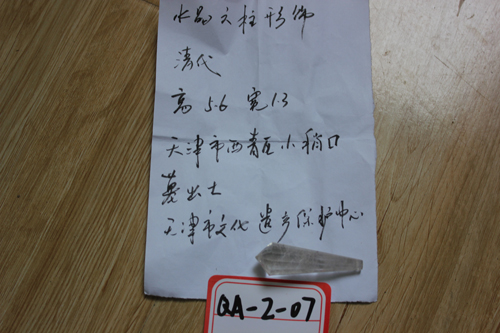 水晶六柱形饰
清代
高5.6 宽1.3
天津市西青区小稍口
墓出土
天津市文化遗产保护中心
QA-2-07